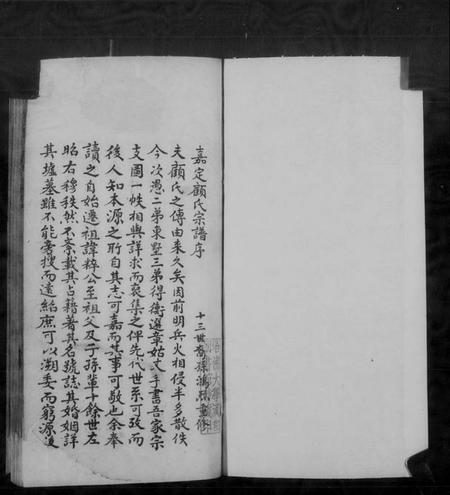 嘉定顧氏宗譜序
十三世裔孫鴻
夫顧氏之傳由来久矣因前明兵火相侵半多散佚
今次愚二弟東墅三弟得衡選章姑丈手書吾家宗
支圖一帙相與詳求而裒集之俾先代世系可攷而
後人知本源之所自其志可嘉而其事可敬也余奉
讀之自始遷祖諱粹公至祖父及子孫輩十餘世左
昭右穆秩然不紊載其占籍著其名號誌其婚姻詳
其墟墓雖不能旁搜而遠紹庶可以溯委而窮源